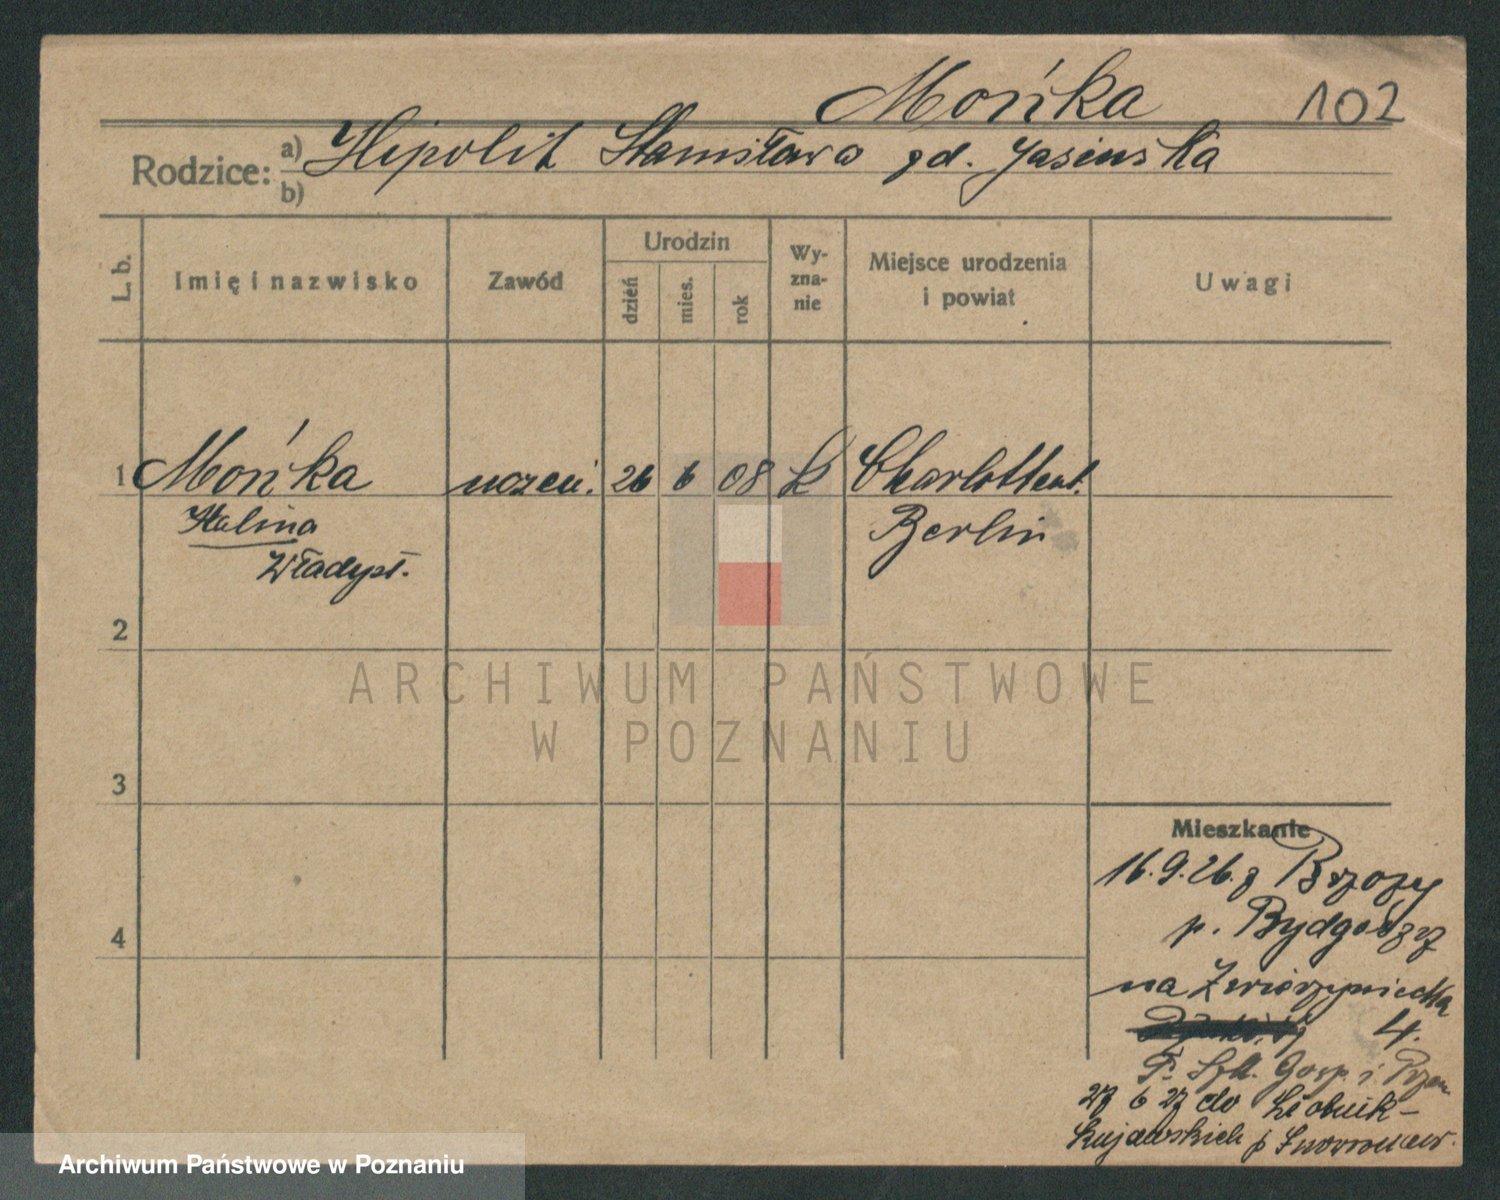 Mońka 102
Rodzice: a) Hipolit Stanisława zd. Jasińska
b)
L. b. Imię i nazwisko Zawód Urodzin dzień mies. rok Wyzna-nie Miejsce urodzenia i powiat Uwagi
1 Mońka uczeń. 26 6 08 k Charlottenb.
Halina Berlin
Władysł.
2
3
4
Mieszkanie
16.9.26. z Brzozy
p. Bydgoszcz
na Zwierzyniecka
4.
Szk. Gosp. i Przem
27 6 27 do
Kujawskich p Inowrocław.
ARCHIWUM PAŃSTWOWE
W POZNANIU
Archiwum Państwowe w Poznaniu